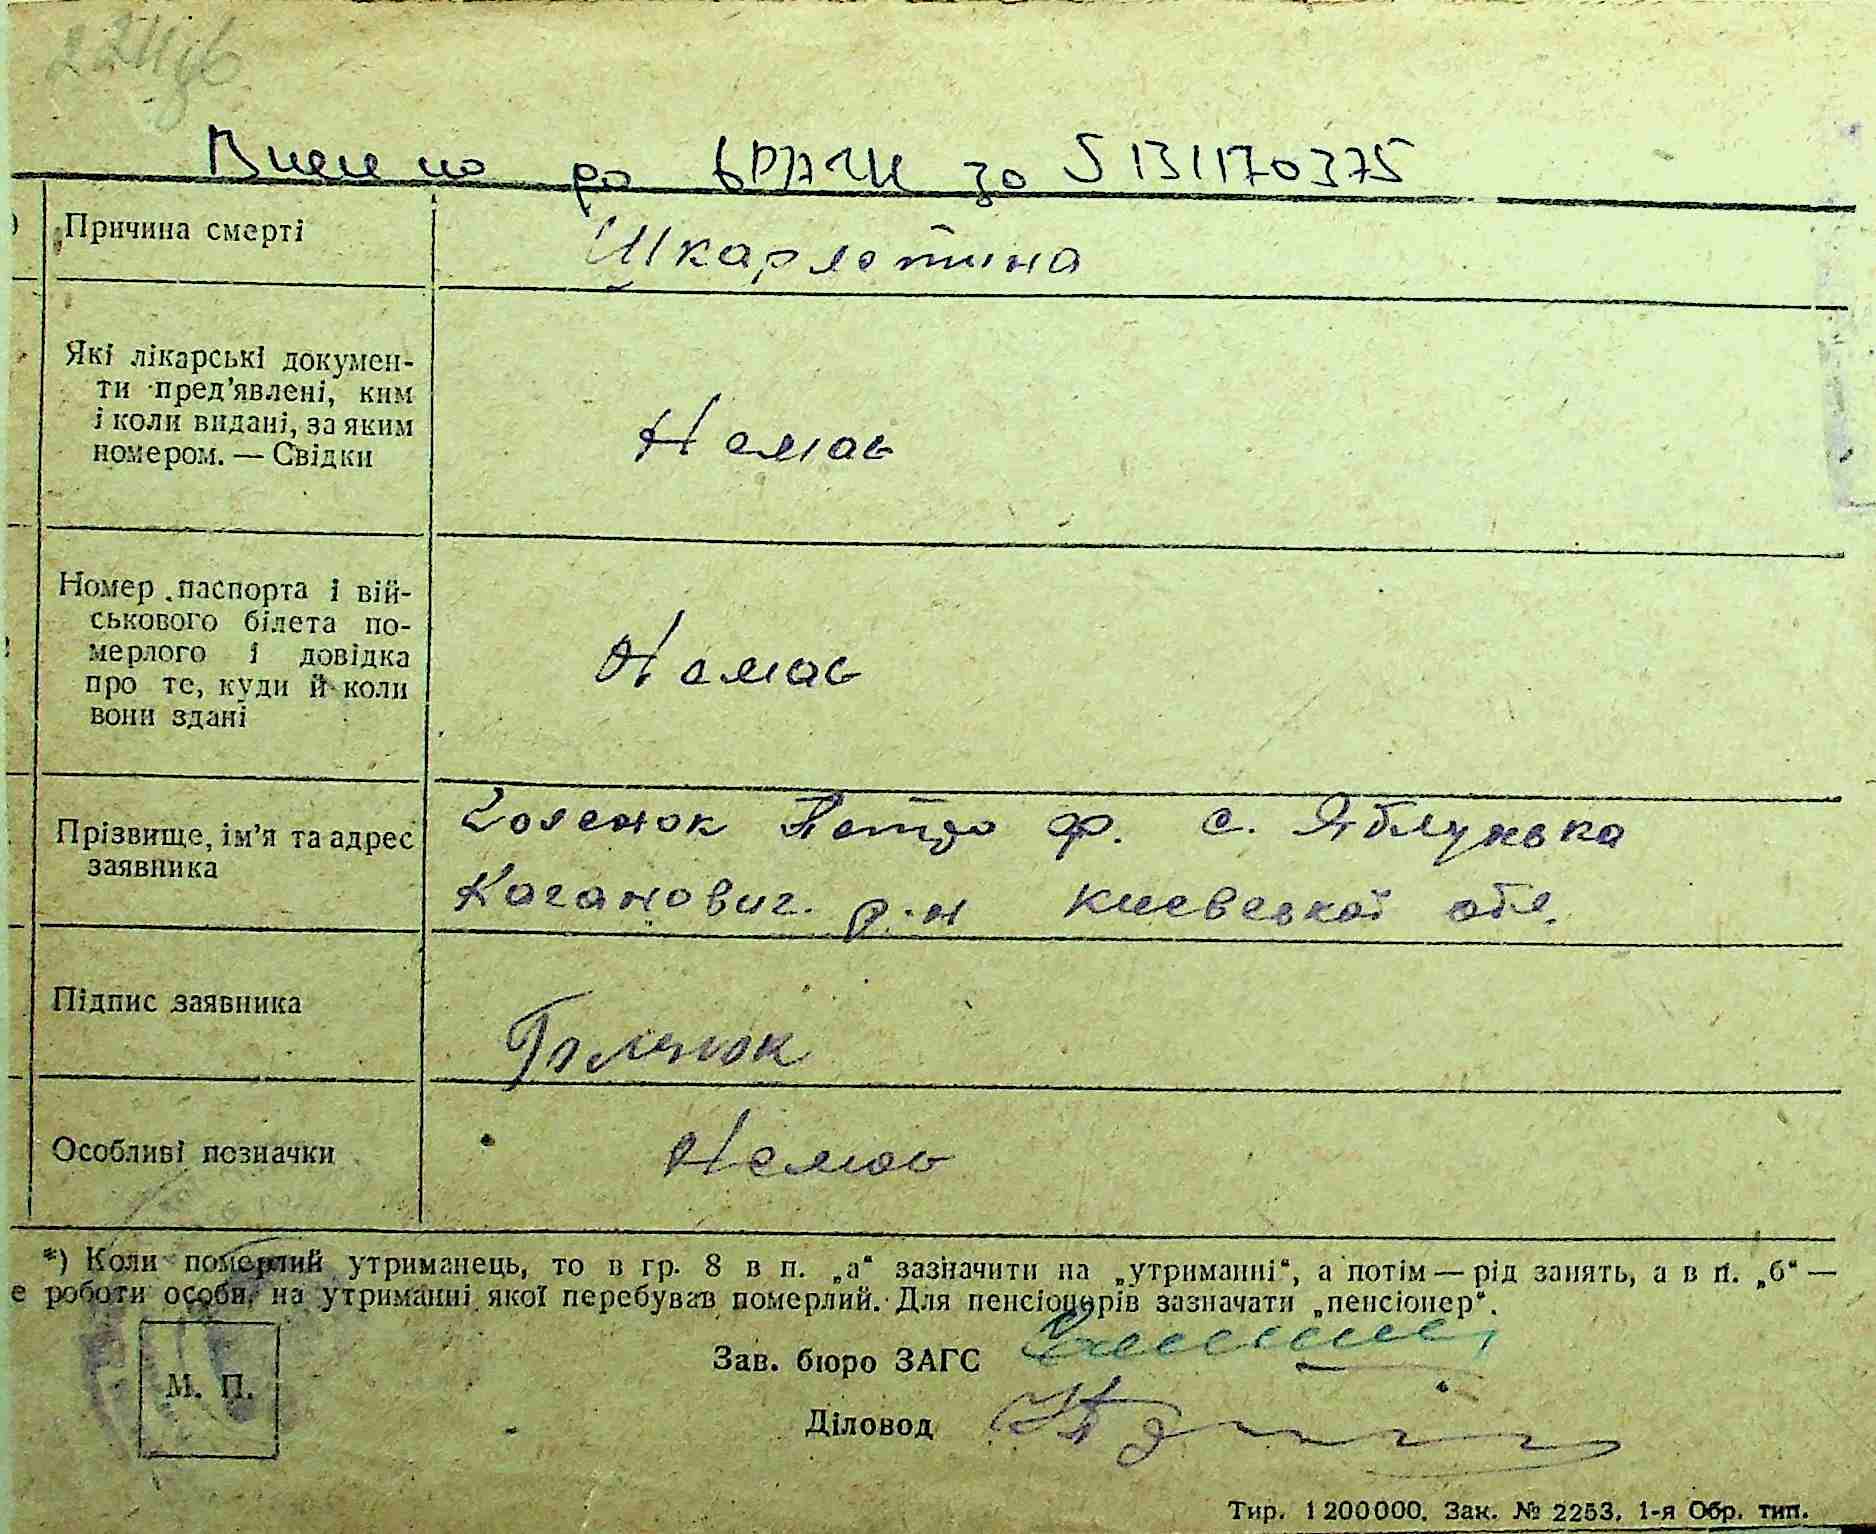 Внесено до ДРАЦС за 5131170375
Причина смерті
Шкарлетина
Які лікарські докумен-
ти пред'явлені, ким
і коли видані, за яким
номером. — Свідки
Немає
Номер паспорта і вій-
ськового білета по-
мерлого і довідка
про те, куди й коли
вони здані
Немає
Прізвище, ім'я та адрес
заявника
Петро ф. с. Яблунька
Каганович. р-н Києвської обл.
Підпис заявника
Особливі позначки
Немає
*) Коли померлий утриманець, то в гр. 8 в п. „а“ зазначити на „утриманні“, а потім — рід занять, а в п. „б“ —
е роботи особи, на утриманні якої перебував померлий. Для пенсіонерів зазначати „пенсіонер“.
Зав. бюро ЗАГС
М. П.
Діловод
Тир. 1200000. Зак. № 2253. 1-я Обр. тип.